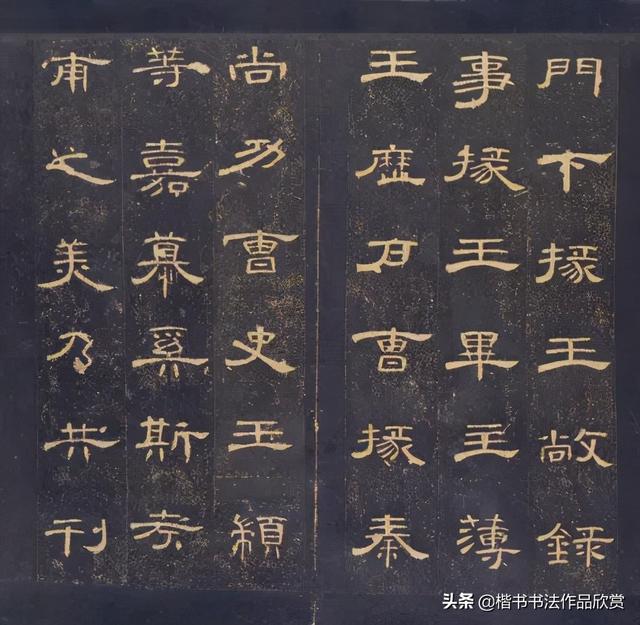 門下掾王敞録
事掾王畢主薄
王歷戶曹掾秦
尚功曹史王顓
等嘉慕奚斯考
甫之美乃共刊
头条 @楷书书法作品欣赏